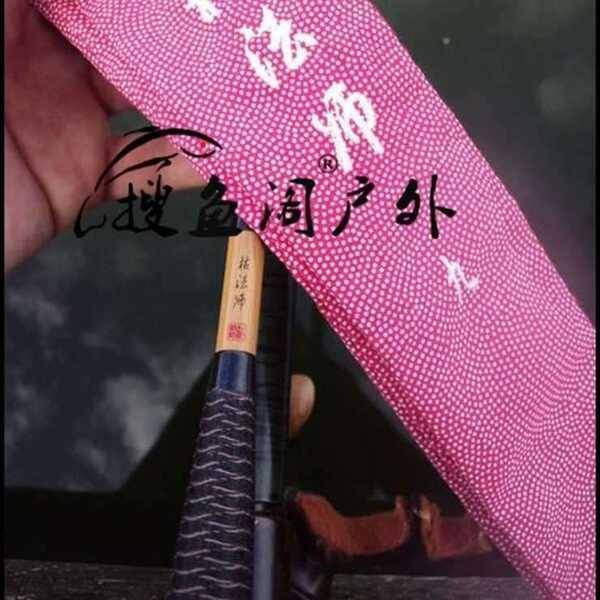 法师
搜鱼阁®户外
九
枯法师